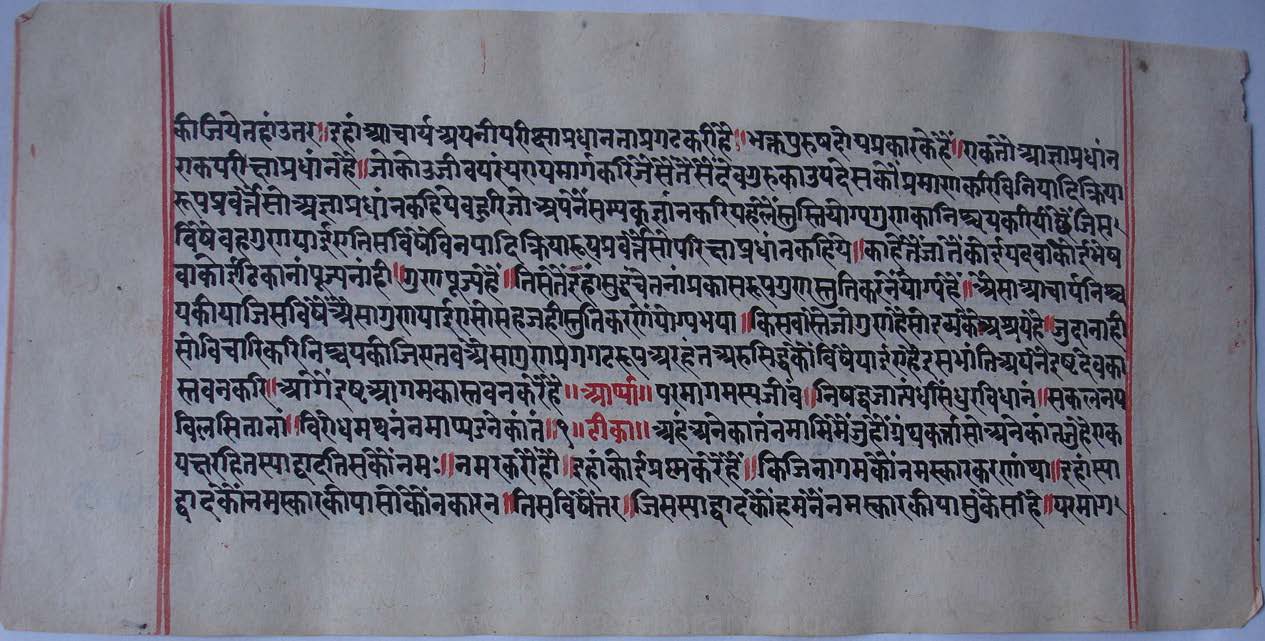 कीजिये नहां उतर॥ इहां आचार्य अपनी परीक्षाप्रधाननां प्रगट करी है॥ भक्त पुरुष दोय प्रकार के हैं॥ एक तो आज्ञाप्रधांन
एक परीक्षाप्रधांन है॥ जो कोउ जीव परंपराय मार्ग करि जैसे तैसे देव गुरु का उपदेस कौं प्रमाण करि विनियादि क्रिया
रूप प्रवर्त्तै सो अज्ञाप्रधांन कहिये बहुरि जो अपनै सम्यक् ज्ञांन करि पहलै स्तुति योग्य गुण का निश्चय करि पीछै जिस
विषै वह गुण पाईए तिस विषै विनयादि क्रियारूप प्रवर्त्तै सो परिक्षाप्रधांन कहिये॥ काहेतै जातै कोई पद वा कोई भेष
वा कोई टिकानां पूज्य नांही॥ गुण पूज्य है॥ तिसतै इहां सुद्ध चेतनां प्रकासरूप गुण स्तुति करनै योग्य है॥ ऐसा आचार्य निश्च
य कीया जिस विषै ऐसा गुण पाईए सो सहज ही स्तुति करणां योग्य भया॥ किस वास्तै जो गुण है सो द्रव्य कै आश्रय है॥ जुदा नाही
सो विचारि करि निश्चय कीजिए तब ऐसा गुण प्रगगटरूप अरहंत अरु सिद्ध कों विषै पाईए है इस भांति अपनै इष्ट देव का
स्तवन करि॥ आगै इष्ट आगम का स्तवन करै है॥ आर्या॥ परमागमस्य जीवं॥ निषद्धजात्यंधसिंधुरविधानं॥ सकलनय
विलसितानां॥ विरोधमथनं नमाम्यऽनेकांतं॥१॥ टीका॥ अहं अनेकातं नमामि मैं जु हौं ग्रंथकर्त्ता सो अनेकांत जु है एक
पक्षरहित स्याद्वाद तिस कौं नमः॥ नमस्कर करौ हौं॥ इहां कोई प्रश्न करै है॥ कि जिनागम कौं नमस्कार करणां था॥ इहां स्या
द्वाद कौं नमस्कार कीया सो कौंन कारन॥ तिस विषै उत्तर॥ जिस स्याद्वाद कौं हमनै नमस्कार कीया सु कैसा है॥ परमाग